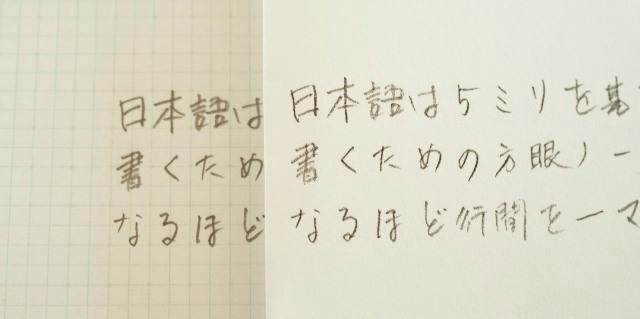 日本語は
書くため
なるほど
日本語は5ミリを基
書くための方眼ノー
なるほど行間を一マ